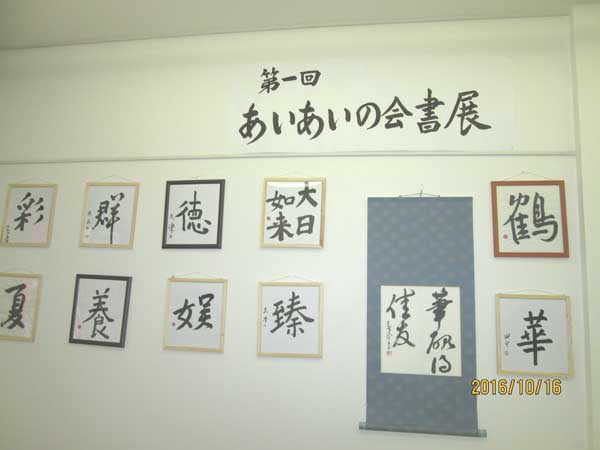 第一回
あいあいの会書展
彩
群
徳
大日
如来
鶴
夏
養
娯
臻
華
佳友
華
2016/10/16